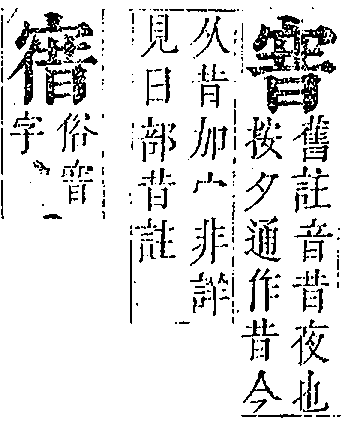 舊註音昔夜也
按夕通作昔今
从昔加宀非詳
見日部昔註
俗
字